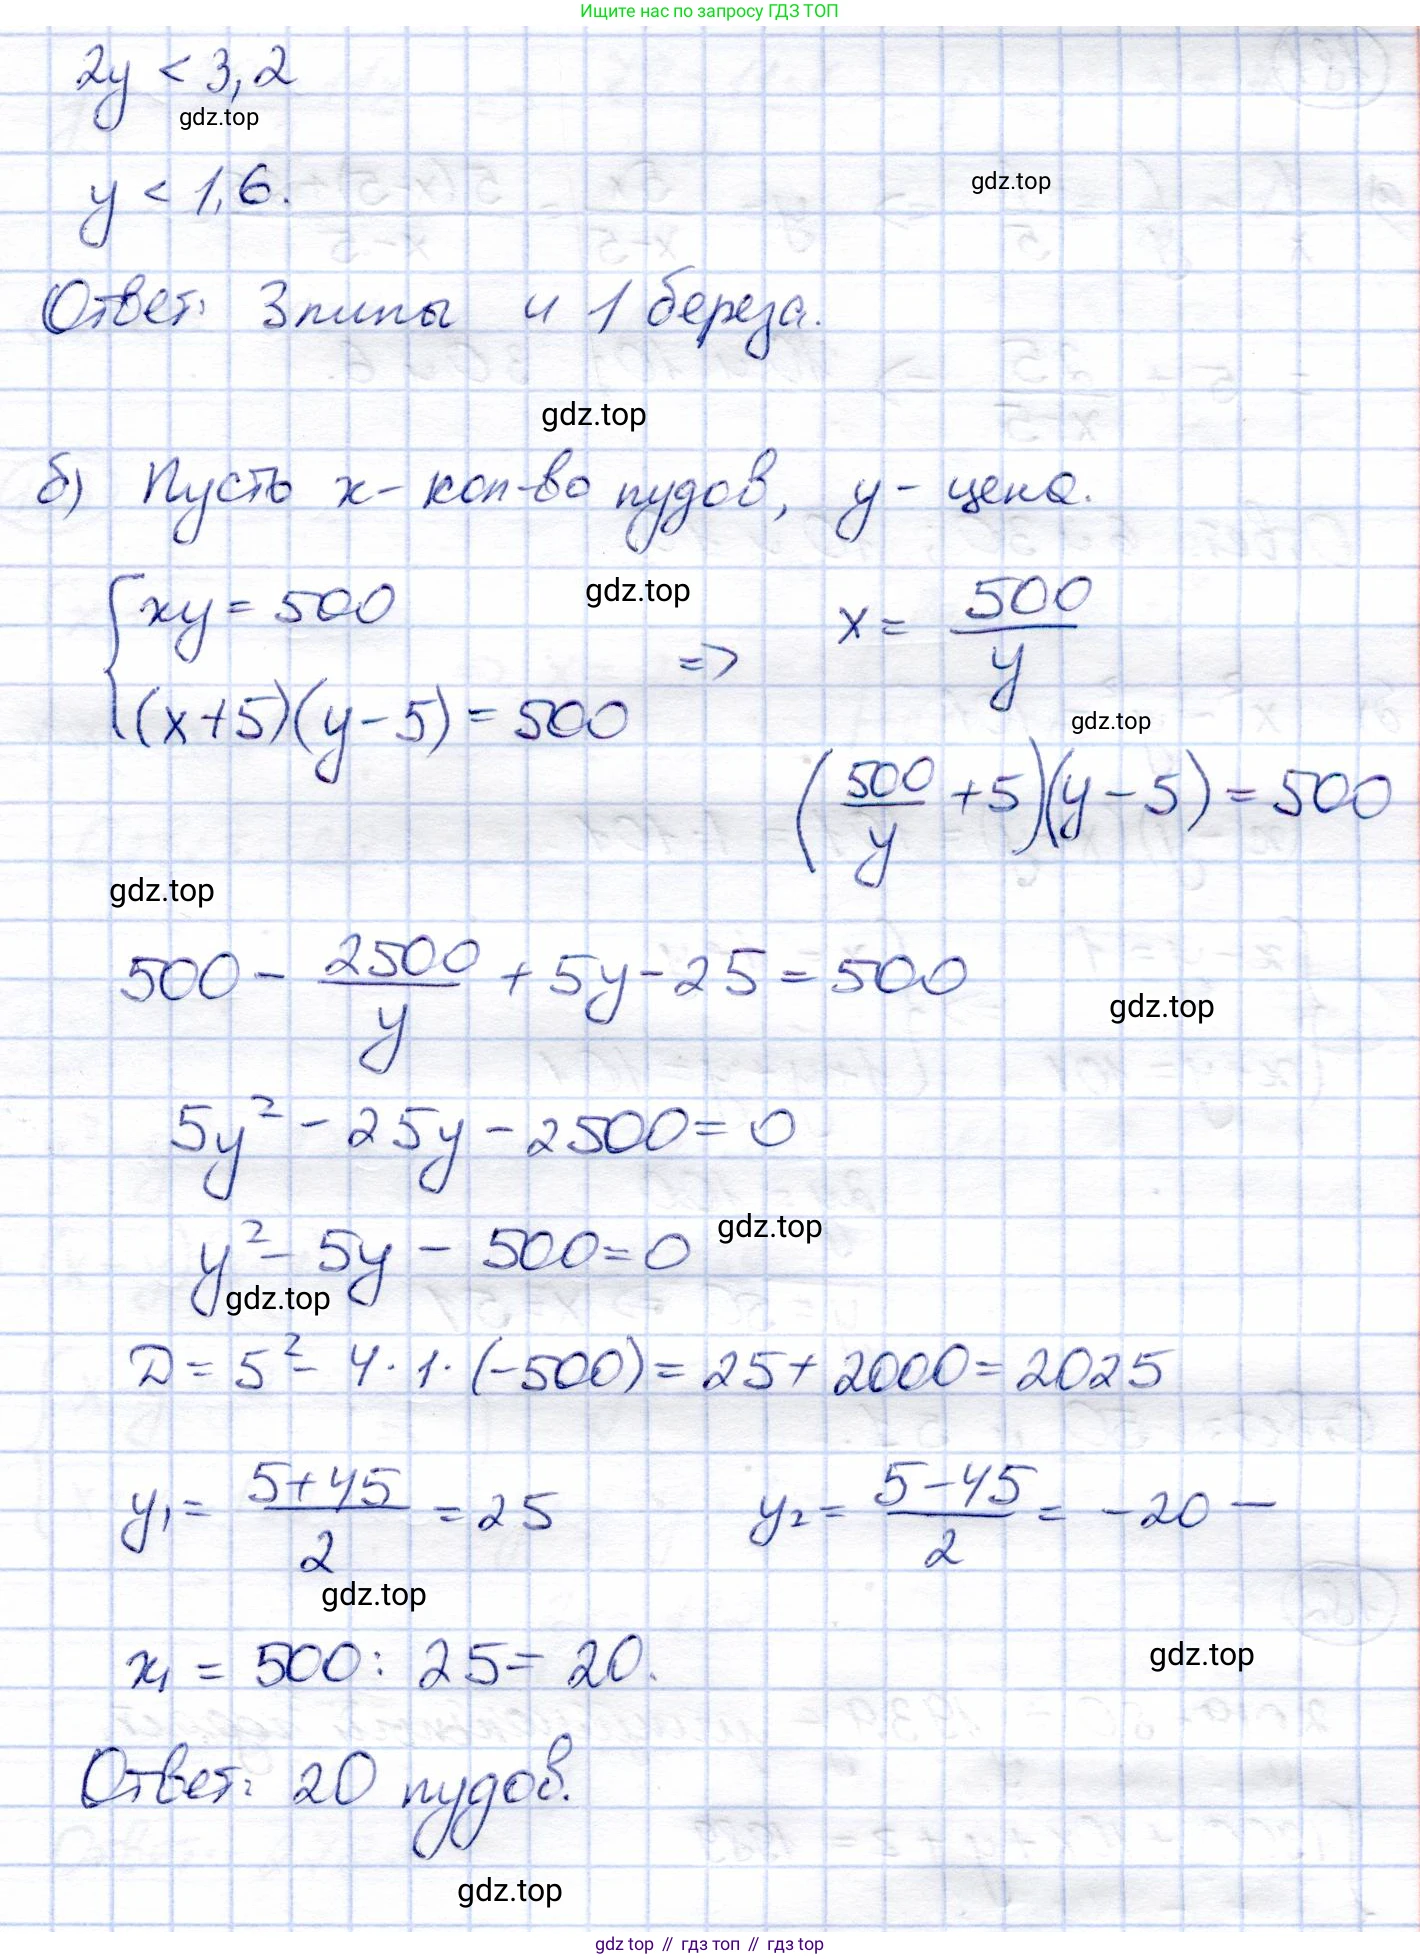 Ищите нас по запросу ГДЗ ТОП
2y < 3,2
gdz.top
y < 1,6.
gdz.top
Ответ: 3 липы и 1 береза.
gdz.top
б) Пусть x - кол-во пудов, y - цена.
{ xy = 500
(x+5)(y-5) = 500
gdz.top
=> x = 500/y
gdz.top
(500/y + 5)(y - 5) = 500
gdz.top
500 - 2500/y + 5y - 25 = 500
gdz.top
5y² - 25y - 2500 = 0
gdz.top
y² - 5y - 500 = 0
gdz.top
D = 5² - 4 · 1 · (-500) = 25 + 2000 = 2025
y₁ = (5+45)/2 = 25 y₂ = (5-45)/2 = -20 —
gdz.top
x₁ = 500 : 25 = 20.
gdz.top
Ответ: 20 пудов.
gdz.top
gdz top // гдз топ // гдз top